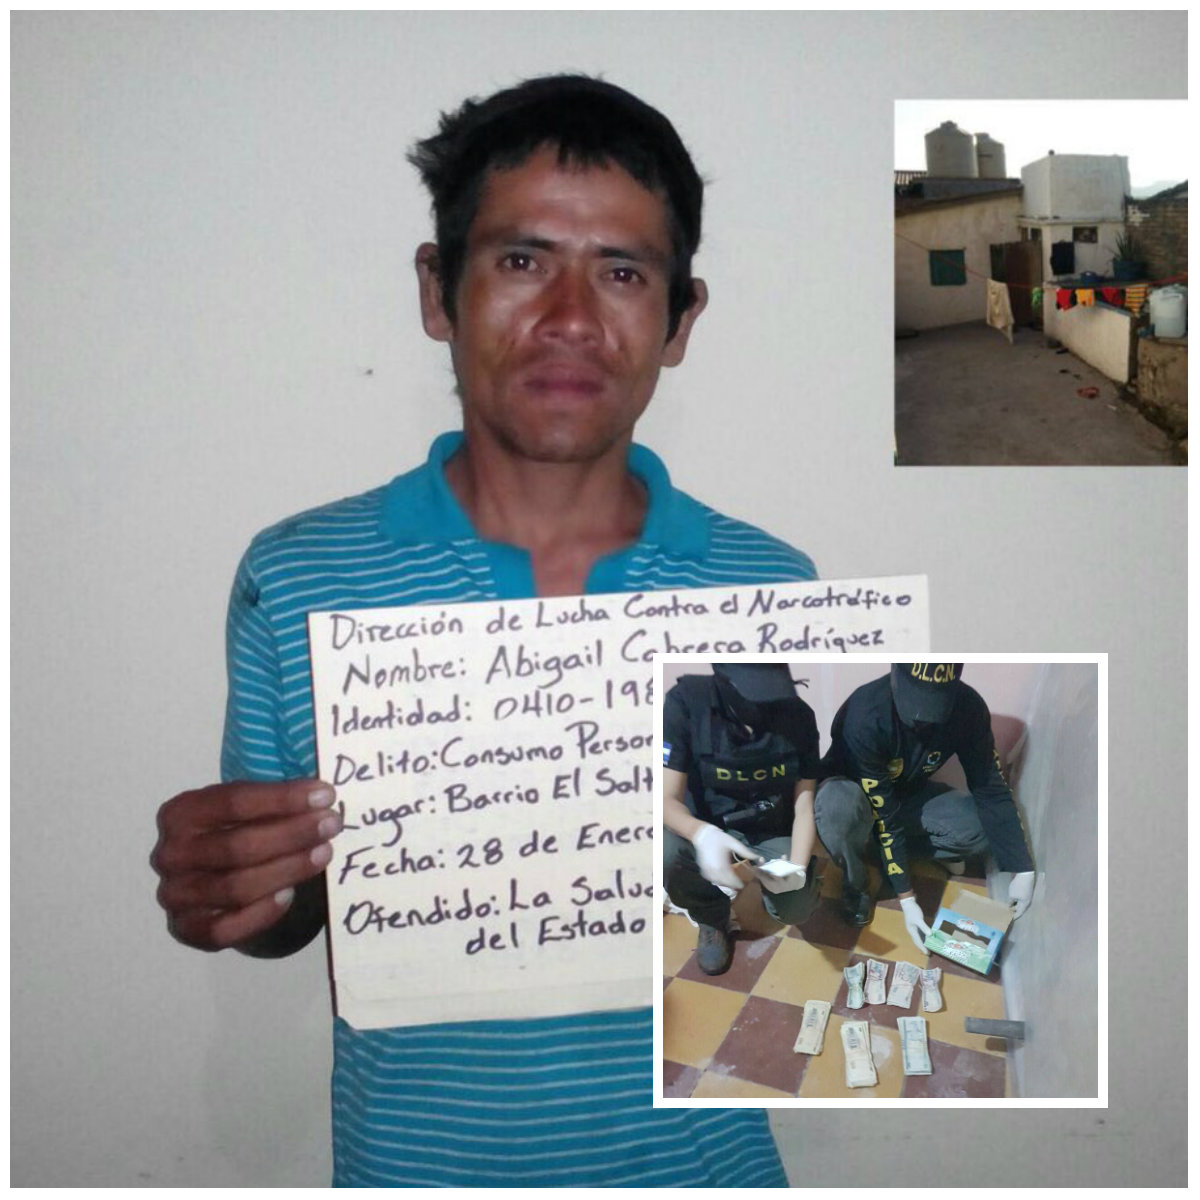 Dirección de Lucha Contra el Narcotráfico
Nombre: Abigail Cabrera Rodríguez
Identidad: 0410-198
Delito: Consumo Person
Lugar: Barrio El Salt
Fecha: 28 de Enero
Ofendido: La Salud
del Estado
D.L.C.N.
DLCN
POLICIA